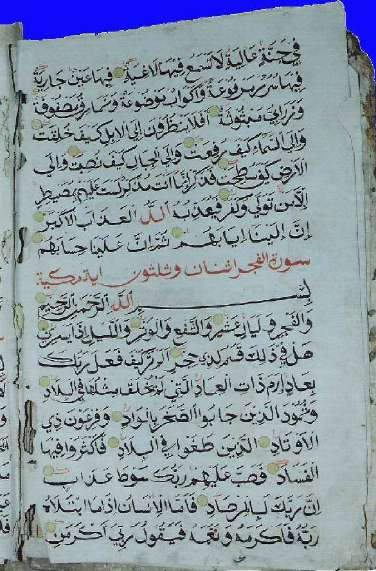 في جنة عالية لا تسمع فيها لاغية فيها عين جارية
فيها سرر مرفوعة وأكواب موضوعة ونمارق مصفوفة
وزرابي مبثوثة أفلا ينظرون إلى الإبل كيف خلقت
وإلى السماء كيف رفعت وإلى الجبال كيف نصبت وإلى
الأرض كيف سطحت فذكر إنما أنت مذكر لست عليهم بمصيطر
إلا من تولى وكفر فيعذبه الله العذاب الأكبر
إن إلينا إيابهم ثم إن علينا حسابهم
سورة الفجر اثنان وثلثون اية مكية
بسم الله الرحمن الرحيم
والفجر وليال عشر والشفع والوتر والليل إذا يسر
هل في ذلك قسم لذي حجر ألم تر كيف فعل ربك
بعاد إرم ذات العماد التي لم يخلق مثلها في البلاد
وثمود الذين جابوا الصخر بالواد وفرعون ذي
الأوتاد الذين طغوا في البلاد فأكثروا فيها
الفساد فصب عليهم ربك سوط عذاب
إن ربك لبالمرصاد فأما الإنسان إذا ما ابتلاه
ربه فأكرمه ونعمه فيقول ربي أكرمن